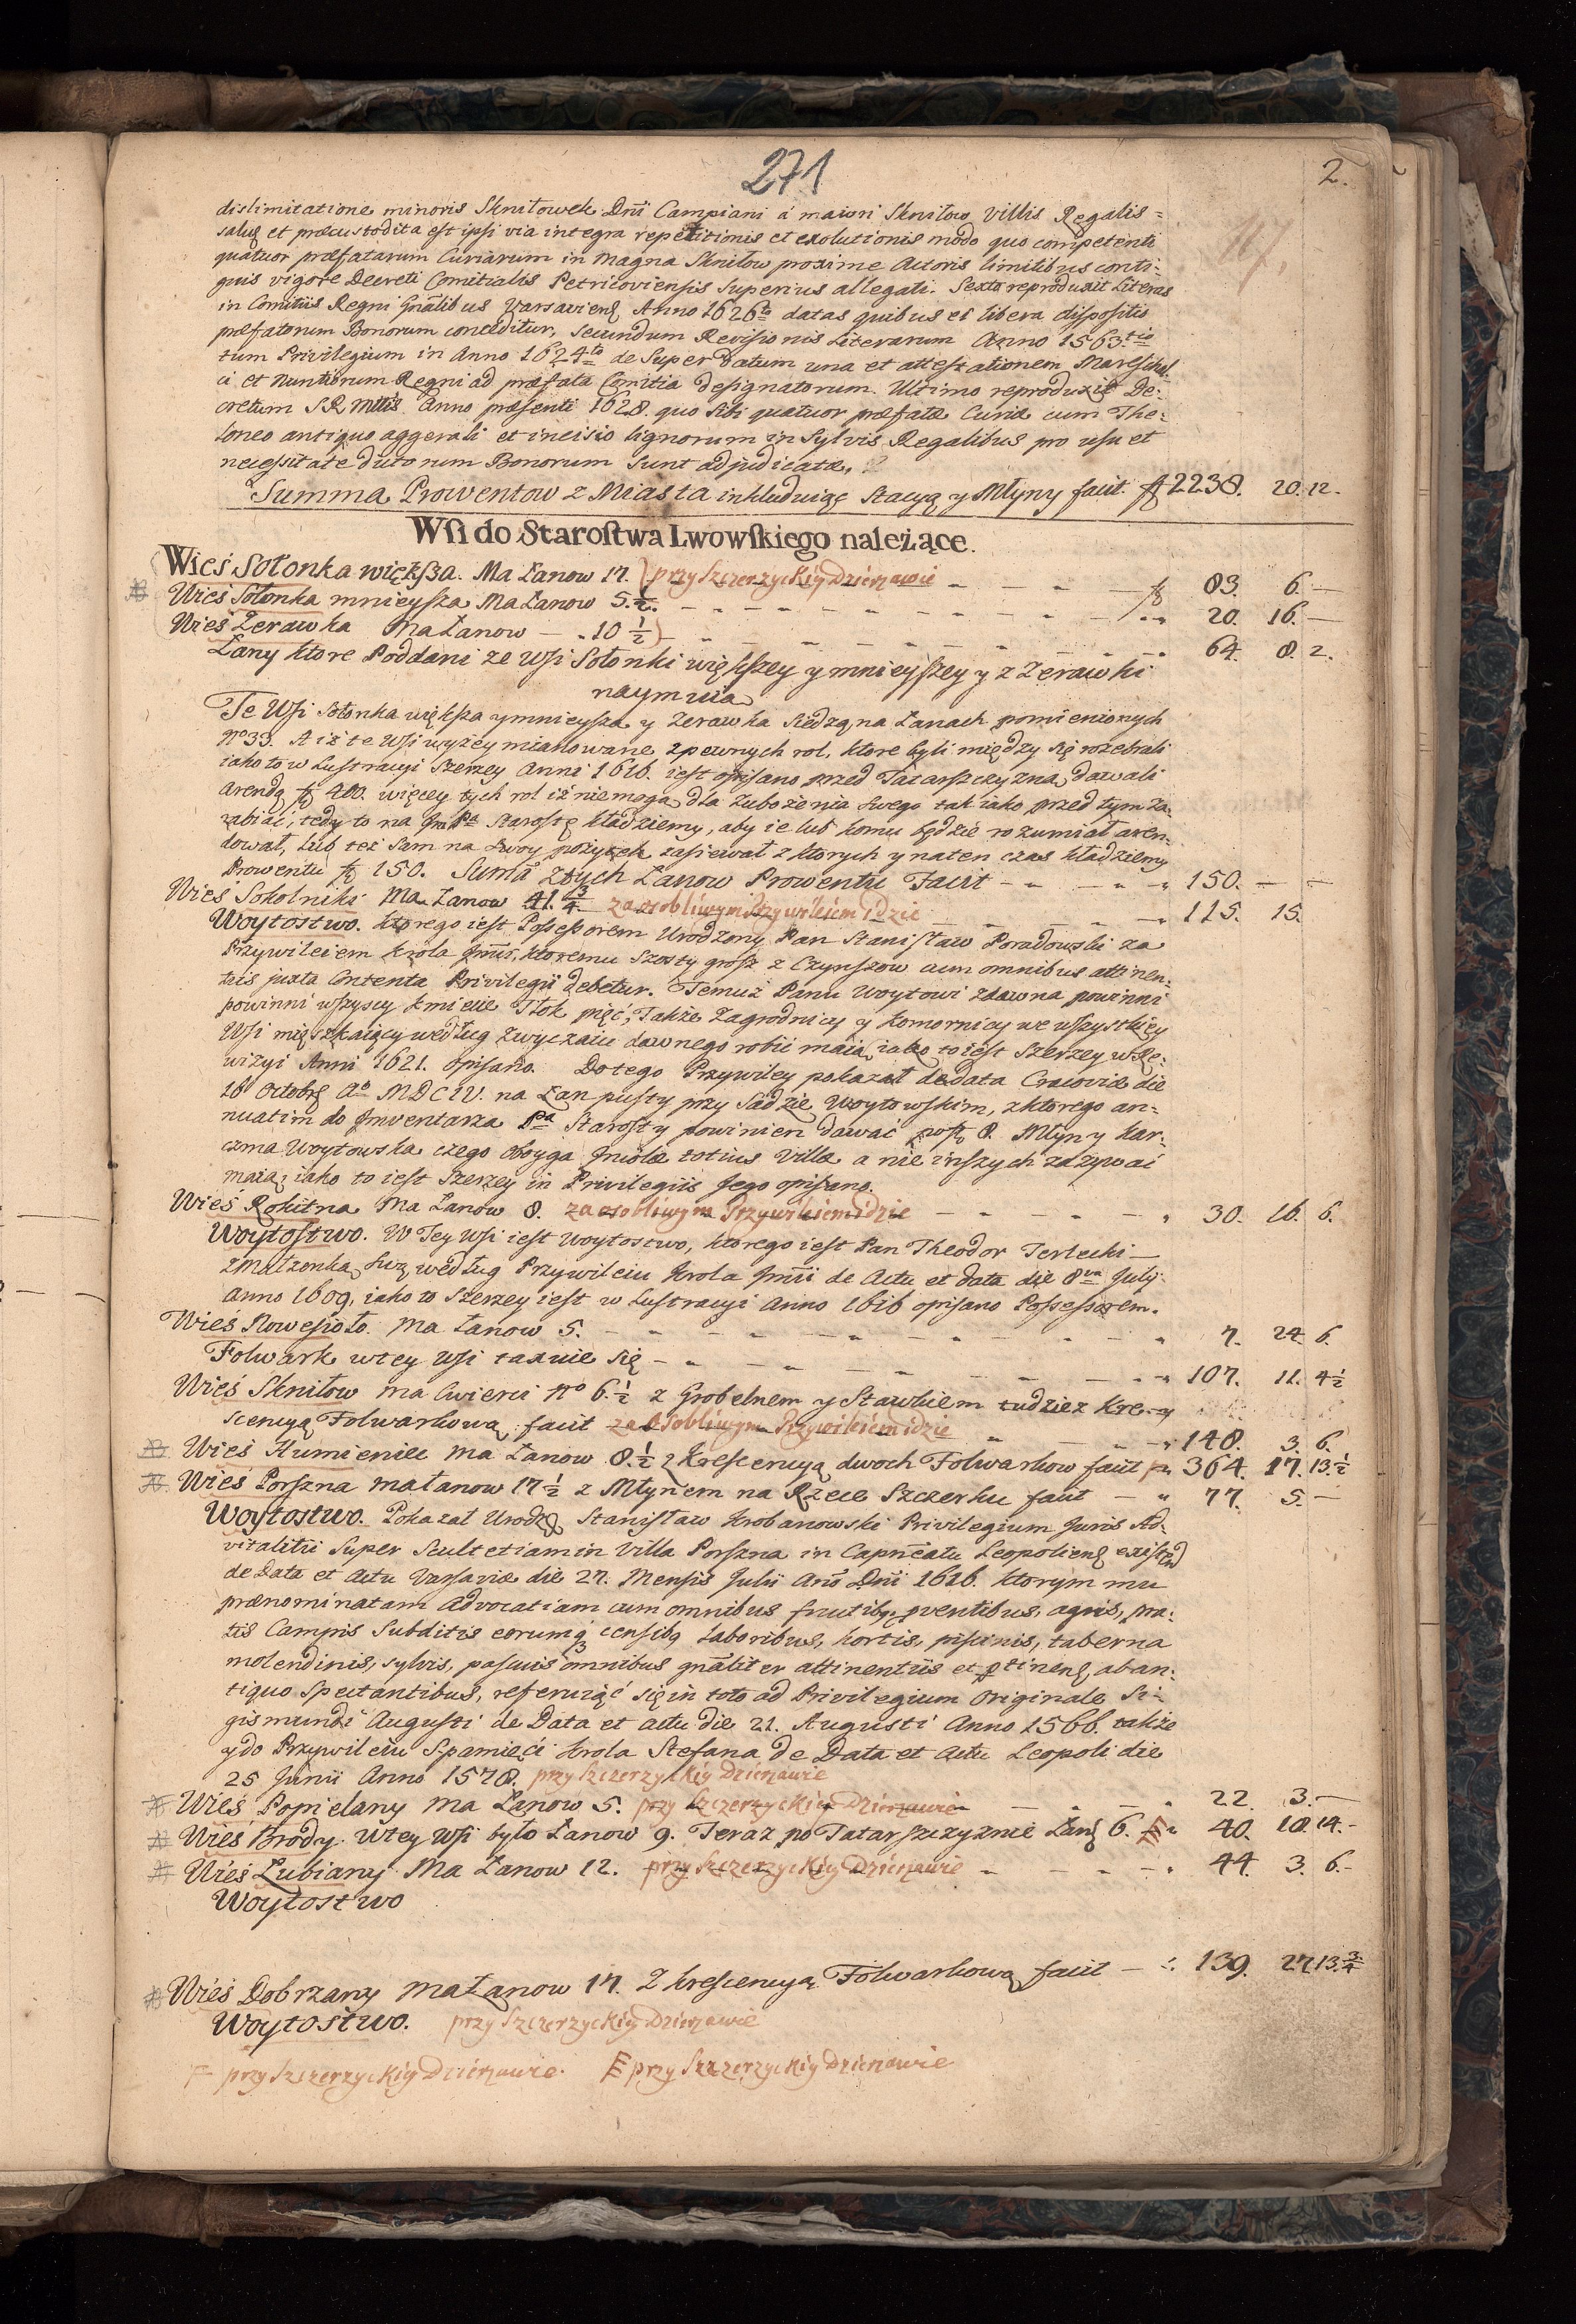 271
2.
dislimitatione minoris Sknitowek Dnī Campiani á maiori Sknitow Villis Regalis=
salus et præcustodita est ipsi via integra repetitionis et exolutionis modo quo competenti
quatuor præfatarum Curiarum in Magna Sknitow proxime Actoris limitibus conti=
guis vigore Decreti Comitialis Petricoviensis Superius allegati. Sexto reproduxit Literas
in Comitiis Regni Gnālibus Varsavienς Anno 1626to datas quibus ei libera dispositio
præfatorum Bonorum conceditur, Secundum Revisionis Literarum Anno 1563.tio
tum Privilegium in Anno 1624to de Super datum una et attestationem Mareschal
ci et Nuntiorum Regni ad præfata Comitia designatorum. Ultimo reproduxit De=
cretum S R Mttis Anno præsenti 1628. quo sibi quatuor præfatæ Curiæ cum The=
loneo antiquo aggerali et incisio lignorum in Sylvis Regalibus pro usu et
necessitate dictorum Bonorum sunt adjudicatæ.
Summa Prowentow z Miasta inkluduiąc Stacyą y Młyny facit. f 2238. 20. 12.
Wsi do Starostwa Lwowskiego należące.
Wieś Sołonka większa. Ma Łanow 17. przy Szczerzyckiy Dzierzawie f 83. 6. —
Wieś Sołonka mnieysza Ma Łanow 5.½. 20. 16. —
Wieś Zerawka Ma Łanow — 10 ½ 64. 8. 2.
Łany ktore Poddani ze Wsi Sołonki większey y mnieyszey y z Zerawki
naymuią
Te Wsi Sołonka większa y mnieysza y Zerawka siedzą na Łanach pomienionych
No 33. A iż te Wsi wyżey mianowane, z pewnych rol, ktore byli między się rozebrali
iako to w Lustracyi Szerzey Anni 1616. iest opisano przed Tatarszczyzną dawali
arendą f 400. więcey tych rol iż niemogą dla zubożenia swego tak iako przed tym za=
rabiać, tedy to na Jmć Pa Starostę kładziemy, aby ie lub komu będzie rozumiał aren=
dował, lub też sam na swoy pożytek zasiewał z ktorych y na ten czas kładziemy
Prowentu f 150. Summa z tych Łanow Prowentu Facit 150. — —
Wieś Sokolniki Ma Łanow 41.¾ za osobliwym Przywileiem idzie 115. 15.
Woytostwo. ktorego iest Possessorem Urodzony Pan Stanisław Poradowski za
Przywileiem Krola Jmći, ktoremu Szosty grosz z Czynszow cum omnibus attinen=
tiis juxta Contenta Privilegii debetur. Temuż Panu Woytowi zdawna powinni
powinni wszyscy kmiecie Tłok pięć, Także Zagrodnicy y komornicy we wszystkiey
Wsi mięszkaiący według zwyczaiu dawnego robić maią iako to iest Szerzey w Re=
wizyi Anni 1621. opisano. Do tego Przywiley pokazał de data Cracoviæ die
18 Octobrς Ao MDCIV. na Łan pusty przy Sadzie Woytowskim, z ktorego an=
nuatim do Jnwentarza Pa Starosty powinien dawać po f 8. Młyny kar=
czma Woytowska czego oboyga Jncolæ totius Villæ a nie inszych zażywać
maią, iako to iest Szerzey in Privilegiis Jego opisano.
Wieś Rokitna Ma Łanow 8. za osobliwym Przywileiem idzie 30. 16. 6.
Woytostwo. W Tey Wsi iest Woytostwo, ktorego iest Pan Theodor Terlecki —
z Małzonką swą według Przywileiu Krola Jmći de Actu et data die 8va July
Anno 1609, iako to Szerzey iest w Lustracyi Anno 1616 opisano Possessorem.
Wieś Nowesioło. Ma Łanow 5. 7. 24. 6.
Folwark w tey Wsi taxuie się 107. 11. 4½
Wieś Sknitow ma cwierci No 6.½ z Grobelnem y Stawkiem tudziez Kre-
scencyą Folwarkową facit za osobliwym Przywileiem idzie 148. 3. 6.
Wieś Humieniec Ma Łanow 8.½ z Krescencyą dwoch Folwarkow facit 364. 17. 13.½
Wieś Porszna ma łanow 17 ½ z Młynem na Rzece Szczerku facit 77. 5. —
Woytostwo. Pokazał Urodzς Stanisław Krobanowski Privilegium Juris Ad=
vitalitii Super Scultetiam in Villa Porszna in Capneatu Leopolienς existend
de Data et Actu Varsaviæ die 27. Mensis Julii Ano Dni 1616. ktorym mu
prænominatam Advocatiam cum omnibus fructibꝫ, proventibus, agris, pra=
tis Campis Subditis eorumqꝫ censibꝫ Laboribus, hortis, piscinis, taberna
molendinis, sylvis, pascuis omnibus gnāliter attinentiis et ptinenς, ab an=
tiquo spectantibus, referuiąć się in toto ad Privilegium Originale Si=
gismundi Augusti de Data et Actu die 21. Augusti Anno 1566. także
y do Przywileiu S. pamięci Krola Stefana de Data et Actu Leopoli die
25 Junii Anno 1578. przy Szczerzyckiy Dzierzawie
Wieś Popielany Ma Łanow 5. przy Szczerzyckiy Dzierzawie 22. 3. —
Wieś Brody. W tey Wsi było Łanow 9. Teraz po Tatarszczyznie Łanς 6. 40. 18. 14. -
Wieś Łubiany Ma Łanow 12. przy Szczerzyckiy Dzierzawie 44. 3. 6. -
Woytostwo
Wieś Dobrzany Ma Łanow 17. z krescencyą Folwarkową facit 139. 27. 13.¾
Woytostwo. przy Szczerzyckiy Dzierzawie
przy Szczerzyckiy Dzierzawie. przy Szczerzyckiy Dzierzawie